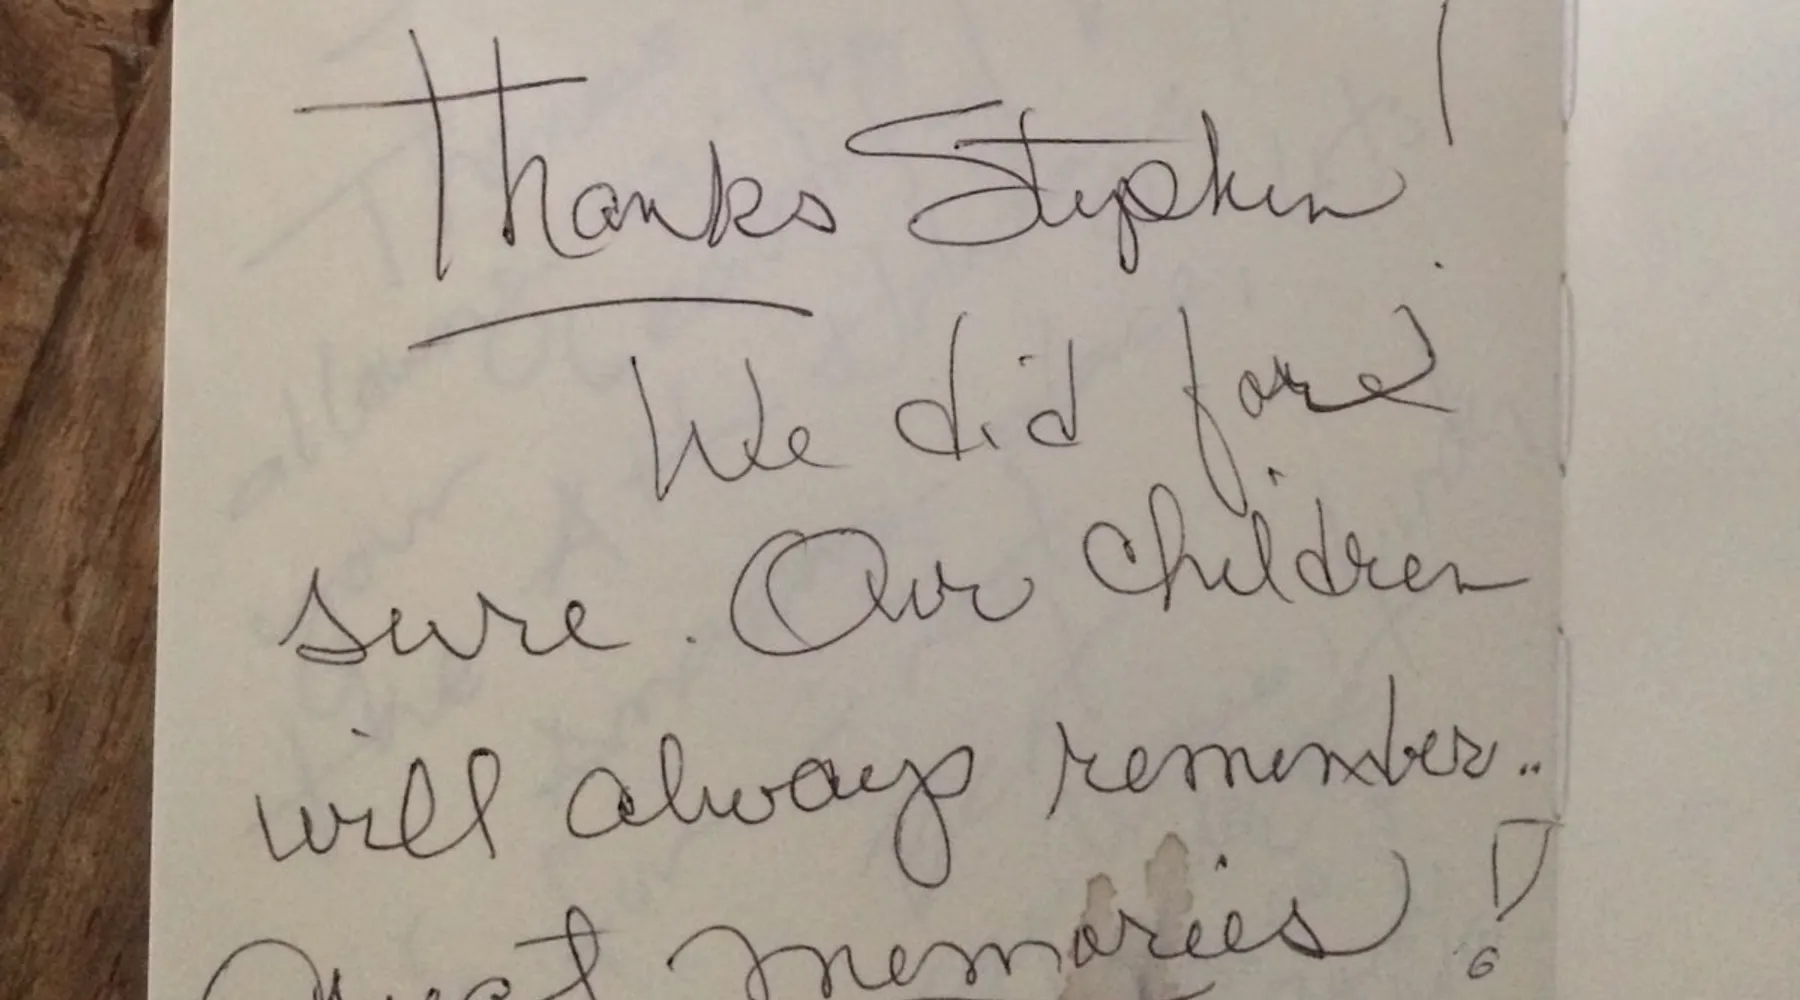 Thanks Stephen!
We did fore
sure. Our children
will always remember..
Great memories!